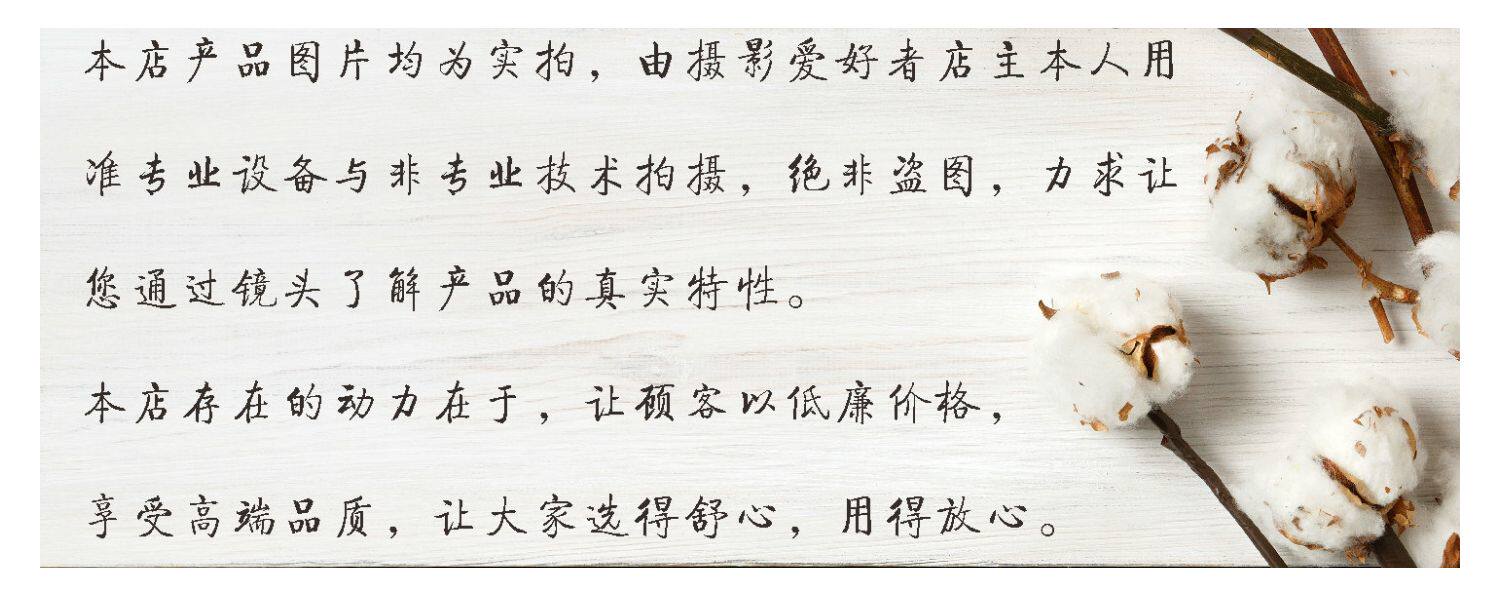 本店产品图片均为实拍，由摄影爱好者店主本人用
准专业设备与非专业技术拍摄，绝非盗图，力求让
您通过镜头了解产品的真实特性。
本店存在的动力在于，让顾客以低廉价格，
享受高端品质，让大家选得舒心，用得放心。